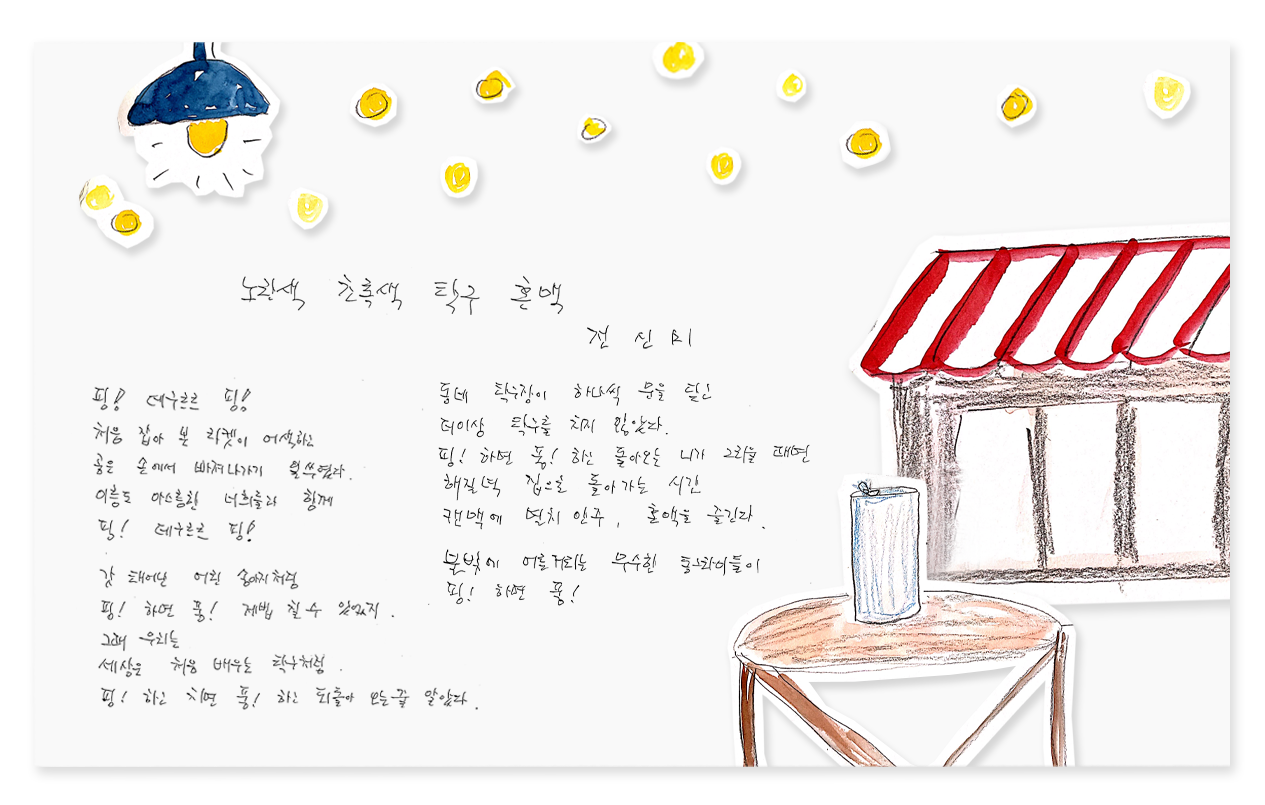 노란색 초록색 탁구 혼맥
전신미
핑! 데구르르 핑!
처음 잡아 본 라켓이 어색하고
공은 손에서 빠져나가기 일쑤였다.
이름도 아스름한 너희들과 함께
핑! 데구르르 핑!
갓 태어난 어린 송아지처럼
핑! 하면 퐁! 제법 칠 수 있었지.
그때 우리는
세상은 처음 배우는 탁구처럼
핑! 하고 치면 퐁! 하고 되돌아 오는 줄 알았다.
동네 탁구장이 하나씩 문을 닫고
더이상 탁구를 치지 않았다.
핑! 하면 퐁! 하고 돌아오는 니가 그리울 때면
해질녘 집으로 돌아가는 시간
캔맥에 먼치 안주, 혼맥을 즐긴다.
불빛에 어른거리는 무수한 동그라미들이
핑! 하면 퐁!